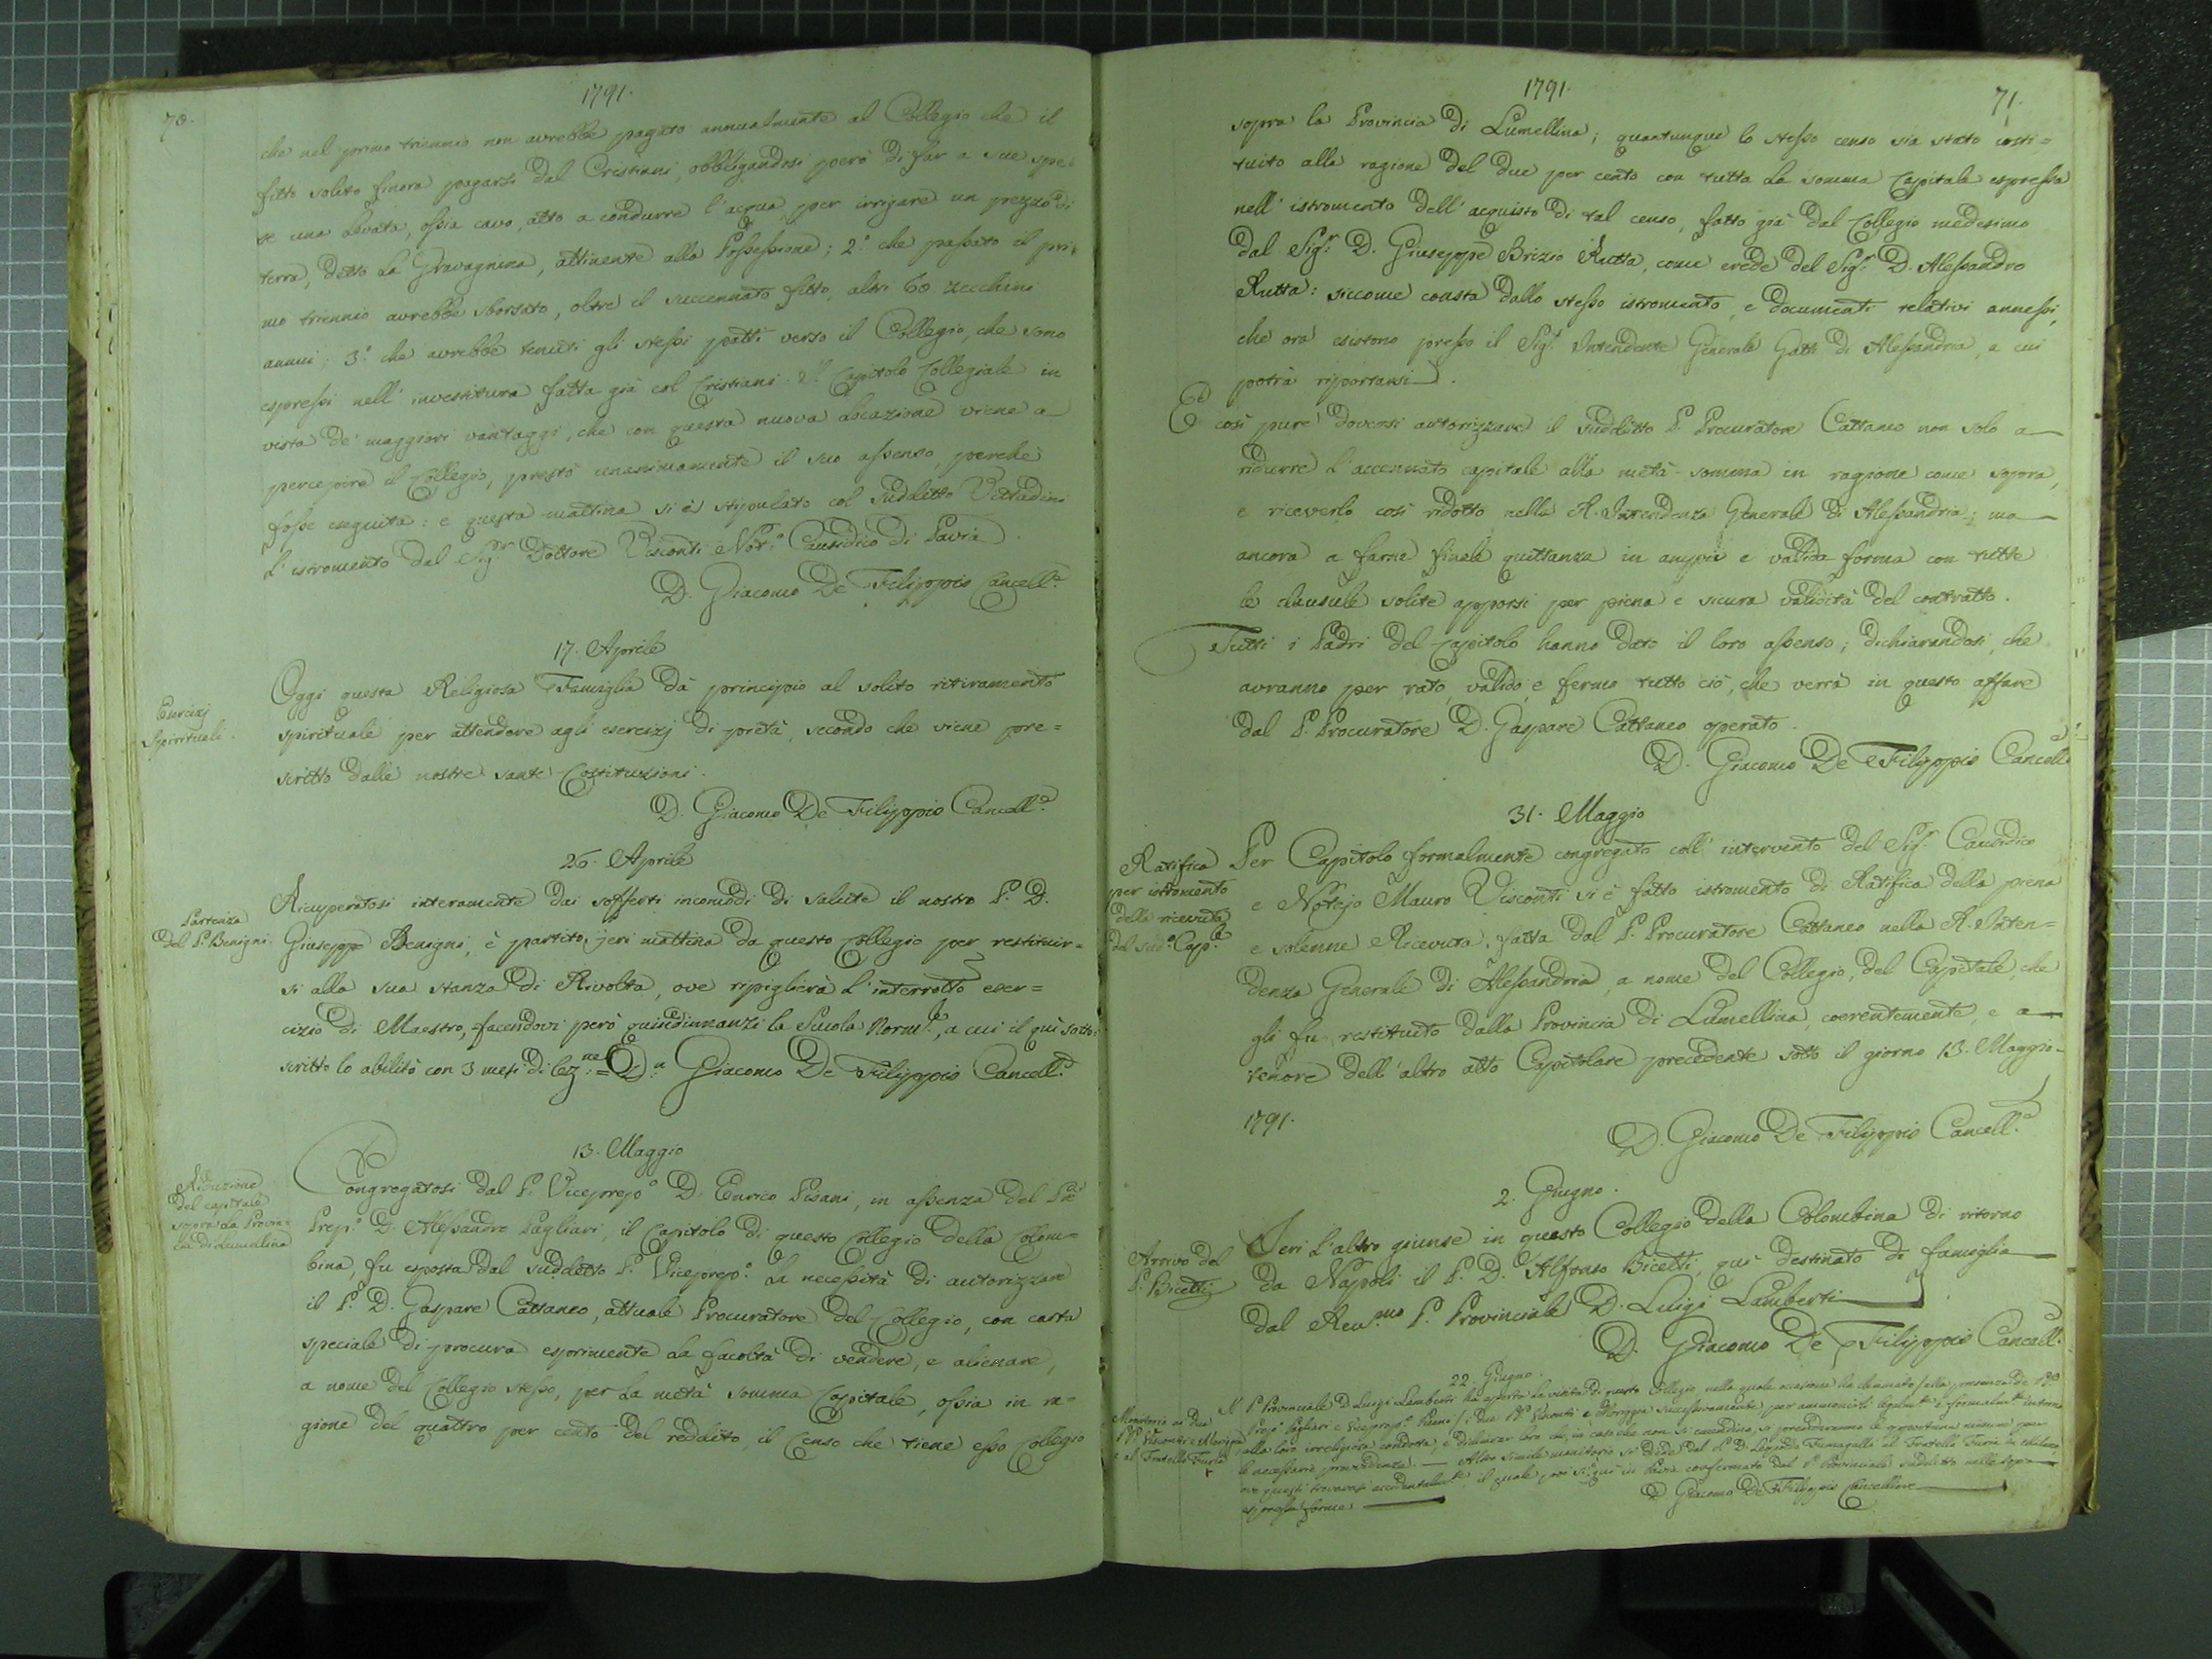 70.
1791.
che nel primo triennio non avrebbe pagato annualmente al Collegio che il
fitto solito finora pagarsi dal Cristiani, obbligandosi però di far a sue spe-
se una levata, ossia cavo, atto a condurre l'acqua per irrigare un prezzo di
terra, detto la Gravagnina, attinente alla Possessione; 2.° che passato il pri-
mo triennio avrebbe sborsato, oltre il succennato fitto, altri 60. zecchini
annui; 3.° che avrebbe tenuti gli stessi patti verso il Collegio, che sono
espressi nell'investitura fatta già col Cristiani. Il Capitolo Collegiale in
vista de' maggiori vantaggi, che con questa nuova locazione viene a
percepire il Collegio, prestò unanimamente il suo assenso, perchè
fosse eseguita: e questa mattina si è stipulato col suddetto Vittadini
l'istromento dal Sig.r Dottore Visconti Not.° Causidico di Pavia.
D. Giacomo De Filippis Cancell.e
17. Aprile
Esercizj
Spirituali.
Oggi questa Religiosa Famiglia dà principio al solito ritiramento
spirituale per attendere agli esercizj di pietà, secondo che viene pre=
scritto dalle nostre sante Costituzioni.
D. Giacomo De Filippis Cancell.e
26. Aprile
Partenza
del P. Benigni.
Ricuperatosi interamente dai sofferti incomodi di salute il nostro P. D.
Giuseppe Benigni, è partito jeri mattina da questo Collegio per restituir=
si alla sua stanza di Rivolta, ove ripiglierà l'interrotto eser=
cizio di Maestro, facendovi però quindinnanzi la Scuola Norm.le, a cui il quì sotto-
scritto lo abilitò con 3. mesi di lez.ne = D.n Giacomo De Filippis Cancell.e
13. Maggio
Riduzione
del capitale
sopra la Provin=
cia di Lumellina
Congregatosi dal P. Viceprep.° D. Enrico Pisani, in assenza del P.re
Prep.° D. Alessandro Pagliari, il Capitolo di questo Collegio della Colom-
bina, fu esposta dal suddetto P. Viceprep.° la necessità di autorizzare
il P. D. Gaspare Cattaneo, attuale Procuratore del Collegio, con carta
speciale di procura esprimente la facoltà di vendere, e alienare,
a nome del Collegio stesso, per la metà somma Capitale, ossia in ra-
gione del quattro per cento del reddito, il Censo che tiene esso Collegio
1791.
71.
sopra la Provincia di Lumellina; quantunque lo stesso censo sia stato costi=
tuito alla ragione del due per cento con tutta la somma Capitale espressa
nell'istromento dell'acquisto di tal censo, fatto già dal Collegio medesimo
dal Sig.r D. Giuseppe Brizio Rutta, come erede del Sig.r D. Alessandro
Rutta: siccome consta dallo stesso istromento, e documenti relativi annessi,
che ora esistono presso il Sig.r Intendente Generale Gatti di Alessandria, a cui
potrà riportarsi.
E così pure doversi autorizzare il suddetto P. Procuratore Cattaneo non solo a
ridurre l'accennato capitale alla metà somma in ragione come sopra,
e riceverlo così ridotto nella R. Intendenza Generale di Alessandria; ma
ancora a farne finale quittanza in ampia e valida forma con tutte
le clausule solite apporsi per piena e sicura validità del contratto.
Tutti i Padri del Capitolo hanno dato il loro assenso; dichiarandosi, che
avranno per rato, valido, e fermo tutto ciò, che verrà in questo affare
dal P. Procuratore D. Gaspare Cattaneo operato.
D. Giacomo De Filippis Cancell.e
31. Maggio
Ratifica
per istromento
della ricevuta
del sud.° Cap.le
Per Capitolo formalmente congregato coll'intervento del Sig.r Causidico
e Notajo Mauro Visconti si è fatto istromento di Ratifica della piena
e solenne Ricevuta, fatta dal P. Procuratore Cattaneo nella R. Inten=
denza Generale di Alessandria, a nome del Collegio, del Capitale, che
gli fu restituito dalla Provincia di Lumellina, coerentemente, e a
tenore dell'altro atto Capitolare precedente sotto il giorno 13. Maggio
1791.
D. Giacomo De Filippis Cancell.e
2. Giugno.
Arrivo del
P. Bicetti
Jeri l'altro giunse in questo Collegio della Colombina di ritorno
da Napoli il P. D. Alfonso Bicetti, quì destinato di famiglia
dal Rev.mo P. Provinciale D. Luigi Lamberti
D. Giacomo De Filippis Cancell.e
22. Giugno.
Monitorio ai due
PP. Visconti e Moriggia
e al Fratello Furia
Il P. Provinciale D. Luigi Lamberti ha aperta la visita di questo Collegio, nella quale occasione ha chiamato (alla presenza de' PP.
Prep.° Pagliari e Viceprep.° Pisani) i due PP. Visconti e Moriggia successivamente per ammonirli legalm.te e formalm.te intorno
alla loro irreligiosa condotta, e dichiarar loro che, in caso che non si emendino, si prenderanno le opportune misure per
le necessarie provvidenze. — Altro simile monitorio si diede dal P. D. Fumagalli al Fratello Furia in Milano
ove questi trovavasi accidentalm.te, il quale poi si quì in Pavia confermato dal P. Provinciale suddetto nelle sopra
espresse forme
D. Giacomo De Filippis Cancelliere